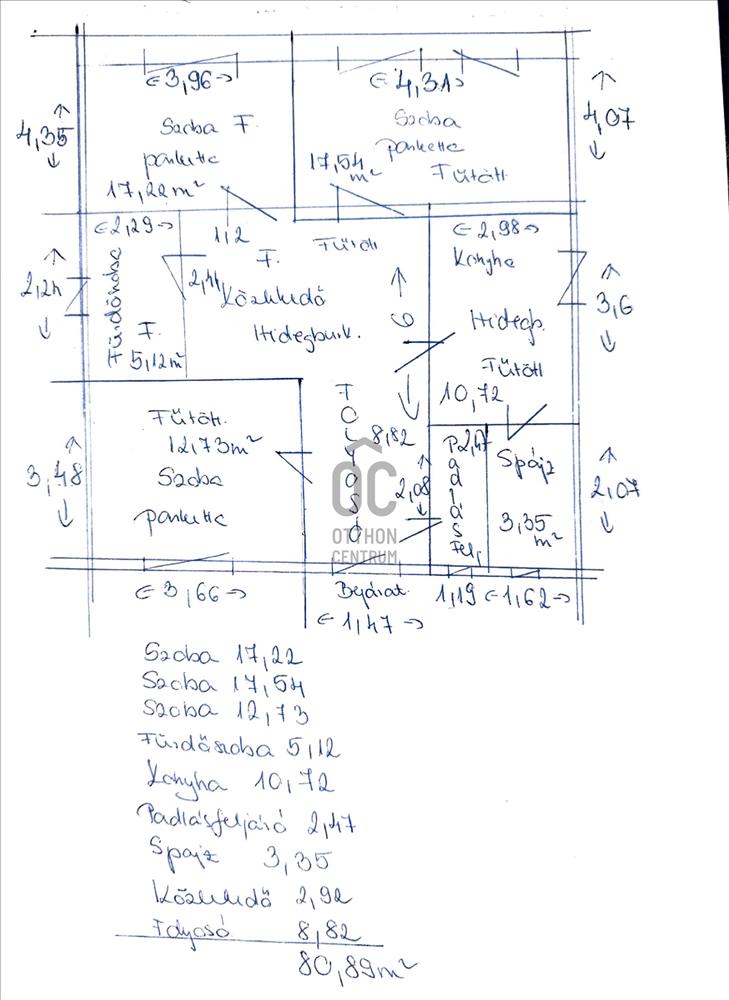 ←3,96→
←4,31→
4,35
4,07
Szoba F.
parketta
17,22 m²
Szoba
parketta
17,54 m²
Fűtött
←2,29→
1,2
Fűtött
←2,98→
Konyha
2,24
Fürdőszoba
F.
5,12 m²
F.
2,44
Közlekedő
Hidegburk.
6
Hidegb.
Fűtött
10,72
3,6
Fűtött
12,73 m²
Szoba
parketta
3,48
Folyosó
8,82
2,08
2,47
Padlás
Felj
Spájz
3,35 m²
2,07
OC
OTTHON
CENTRUM
←3,66→
Bejárat
←1,47→
1,19
←1,62→
Szoba 17,22
Szoba 17,54
Szoba 12,73
Fürdőszoba 5,12
Konyha 10,72
Padlásfeljáró 2,47
Spajz 3,35
Közlekedő 2,92
Folyosó 8,82
80,89 m²